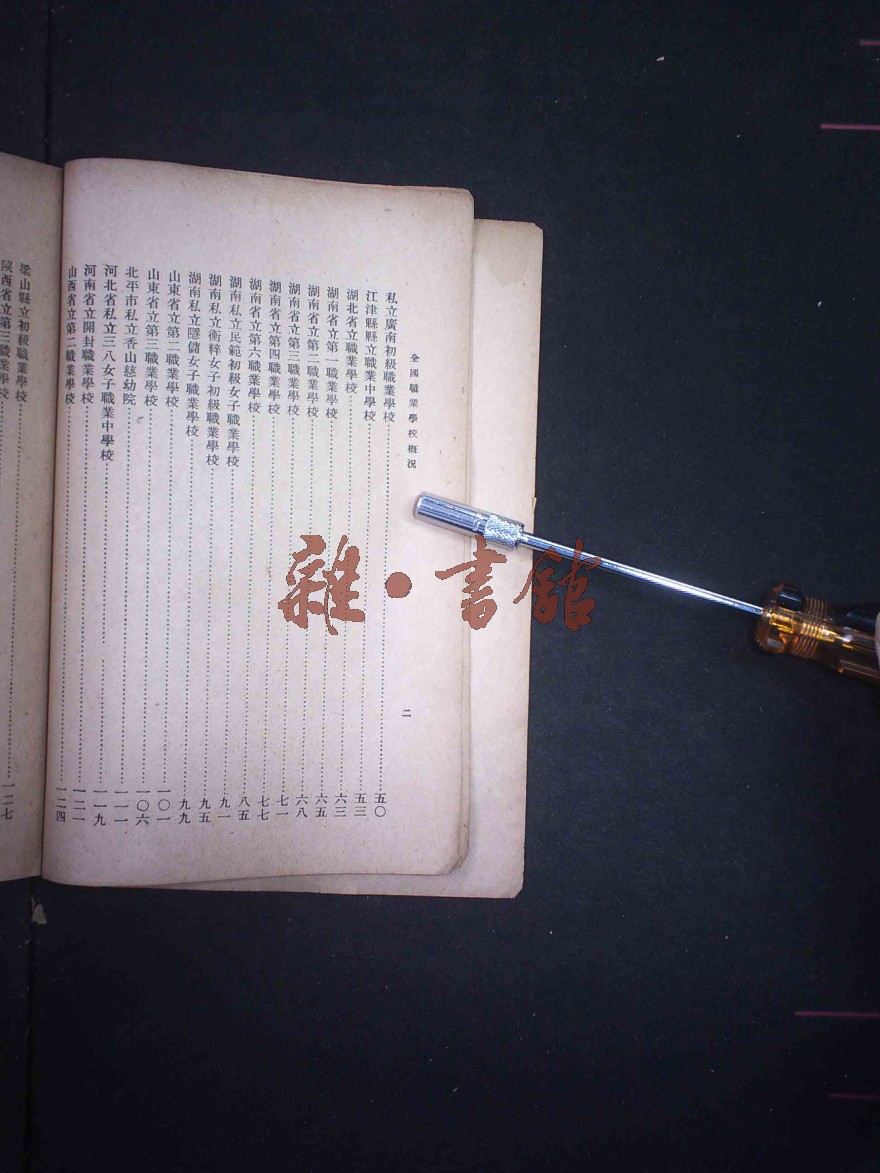 全國職業學校概況
二
私立廣南初級職業學校…………五〇
江津縣縣立職業中學校…………五三
湖北省立職業學校…………六三
湖南省立第一職業學校…………六五
湖南省立第二職業學校…………六八
湖南省立第三職業學校…………七一
湖南省立第四職業學校…………七七
湖南省立第六職業學校…………八五
湖南私立民範初級女子職業學校…………九一
湖南私立衡粹女子初級職業學校…………九五
湖南私立隱儲女子職業學校…………九九
山東省立第二職業學校…………一〇一
山東省立第三職業學校…………一〇六
北平市私立香山慈幼院…………一一一
河北省私立三八女子職業中學校…………一一九
河南省立開封職業學校…………一二一
山西省立第二職業學校…………一二四
梁山縣立初級職業學校…………一二七
陝西省立第三職業學校…………
雜·書館